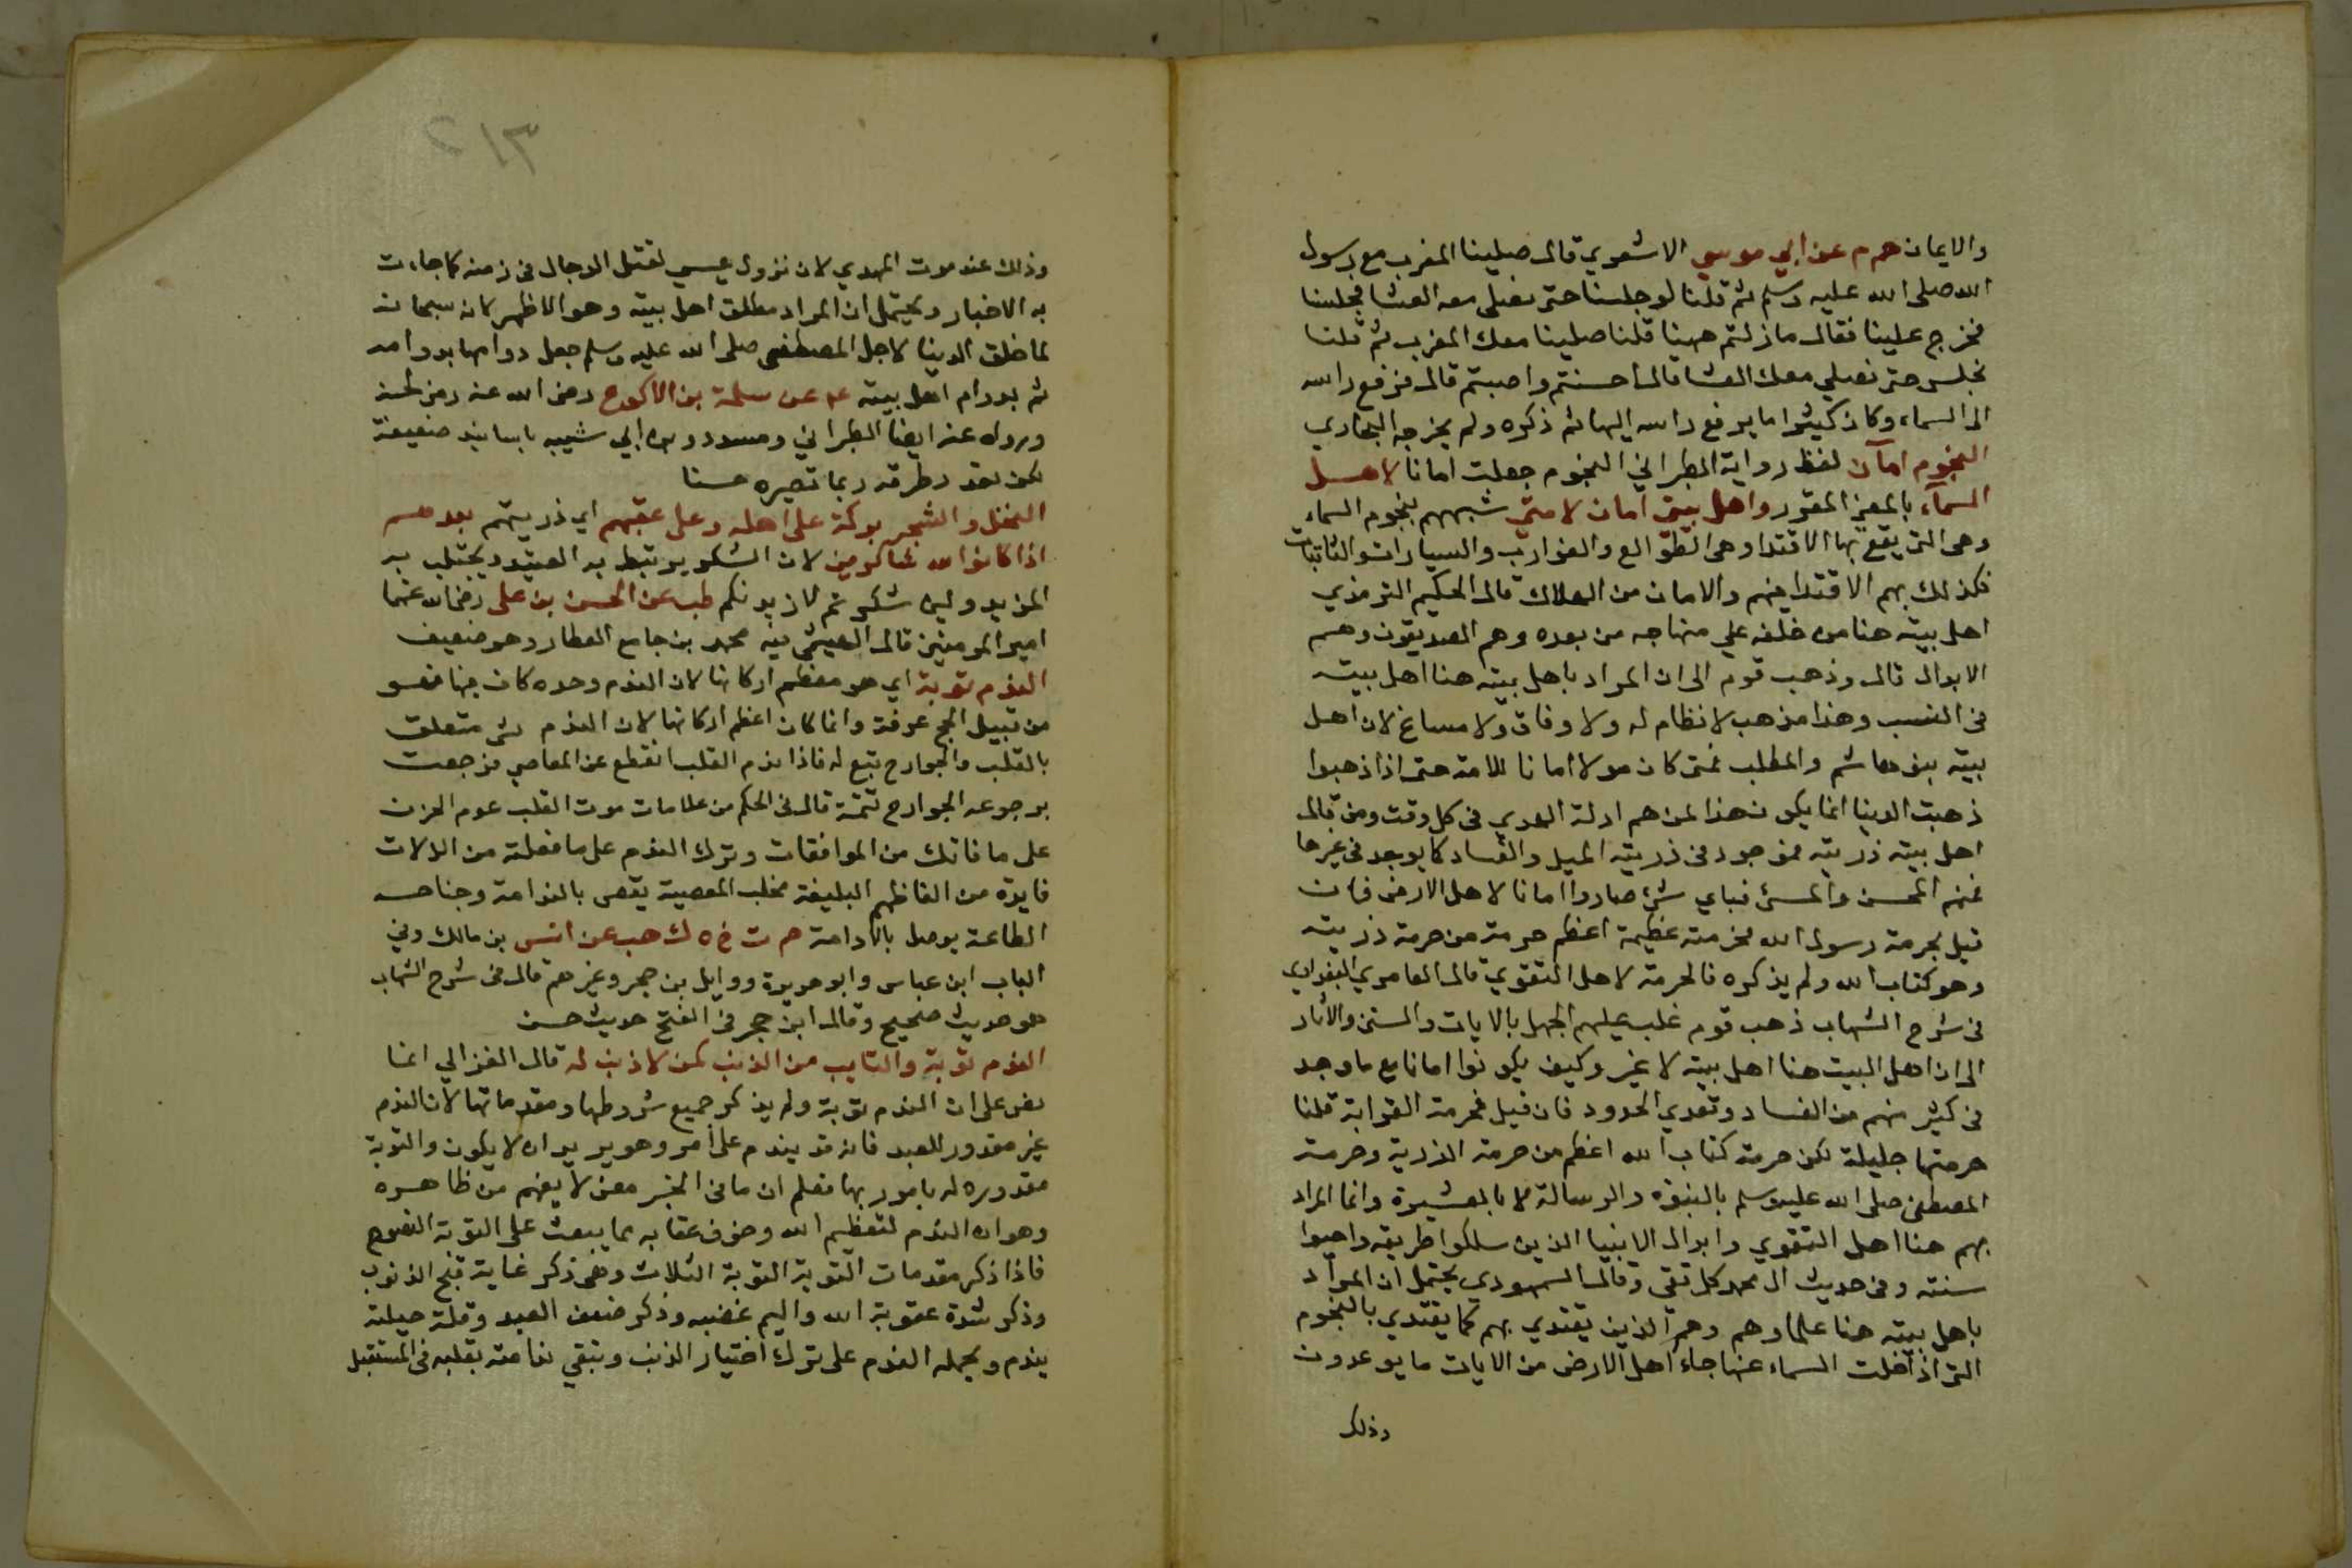 والايمان حم م عن ابي موسي الاشعري قال صلينا المغرب مع رسول
الله صلى الله عليه وسلم ثم قلنا لو جلسنا حتى نصلى معه العشا فجلسنا
فخرج علينا فقال ما زلتم ههنا قلنا صلينا معك المغرب ثم قلنا
نجلس حتى نصلي معك العشا قال احسنتم واصبتم قال فرفع راسه
الى السماء وكان كثيرا ما يرفع راسه اليها ثم ذكره ولم يخرجه البخاري
النجوم امان لفظ رواية الطبراني النجوم جعلت امانا لاهل
السماء بالمعنى المقرر واهل بيتى امان لامتى شبههم بنجوم السماء
وهى التى يقع بها الاقتدا وهى الطوالع والغوارب والسيارات والثابتات
فكذلك بهم الاقتدا فيهم والامان من الهلاك قال الحكيم الترمذي
اهل بيته هنا من خلفه على منهاجه من بعده وهم الصديقون وهم
الابدال قال وذهب قوم الى ان المراد باهل بيته هنا اهل بيته
فى النسب وهذا مذهب لا نظام له ولا وفاق ولا مساغ لان اهل
بيته بنو هاشم والمطلب فمتى كان هولا امانا للامة حتى اذا ذهبوا
ذهبت الدينا انما يكون هذا لمن هم ادلة الهدي فى كل وقت ومن قال
اهل بيته ذريته فموجود فى ذريته الميل والفساد كما يوجد فى غيرها
فمنهم المحسن والمسئ فباي شئ صاروا امانا لاهل الارض فان
قيل بحرمة رسول الله فحرمته عظيمة اعظم حرمة من حرمة ذريته
وهو كتاب الله ولم يذكره فالحرمة لاهل التقوي قال العامري البغدادي
فى شرح الشهاب ذهب قوم غلب عليهم الجهل بالايات والسنن والاثار
الى ان اهل البيت هنا اهل بيته لا غير وكيف يكونوا امانا مع ما وجد
فى كثير منهم من الفساد وتعدي الحدود فان قيل فحرمة القرابة قلنا
حرمتها جليلة لكن حرمة كتاب الله اعظم من حرمة الذرية وحرمة
المصطفى صلى الله عليه وسلم بالنبوة والرسالة لا بالعشيرة وانما المراد
بهم هنا اهل التقوي وابدال الانبيا الذين سلكوا طريقه واحيوا
سنته وفى حديث ال محمد كل تقى وقال السمهودي يحتمل ان المراد
باهل بيته هنا علماوهم وهم الذين يقتدي بهم كما يقتدي بالنجوم
التى اذا خلت السماء عنها جاء اهل الارض من الايات ما يوعدون
وذلك
٢١٣
وذلك عند موت المهدي لان نزول عيسي لقتل الدجال فى زمنه كما جاءت
به الاخبار ويحتمل ان المراد مطلق اهل بيته وهو الاظهر لانه سبحانه
لما خلق الدينا لاجل المصطفى صلى الله عليه وسلم جعل دوامها بدوامه
ثم بدوام اهل بيته ع عن سلمة بن الاكوع رضى الله عنه رمز لحسنه
ورواه عنه ايضا الطبراني ومسدد وابن ابي شيبه باسانيد ضعيفة
لكن تعدد طرقه ربما تصيره حسنا
النخل والشجر بركة على اهله وعلى عقبهم اي ذريتهم بعدهم
اذا كانوا لله شاكرين لان الشكر يرتبط به العتيد ويجتلب به
المزيد ولين شكرتم لازيدنكم طب عن الحسن بن على رضى الله عنهما
امير المومنين قال الهيثمى فيه محمد بن جامع العطار وهو ضعيف
الندم توبة اي هو معظم اركانها لان الندم وحده كاف فيها فهو
من قبيل الحج عرفة وانما كان اعظم اركانها لان الندم شئ متعلق
بالقلب والجوارح تبع له فاذا ندم القلب انقطع عن المعاصي فرجعت
برجوعه الجوارح تتمة قال فى الحكم من علامات موت القلب عدم الحزن
على ما فاتك من الموافقات وترك الندم على ما فعلته من الزلات
فايدة من الفاظهم البليغة مخلب المعصية يقص بالندامة وجناح
الطاعة يوصل بالادامة حم ت خ ه ك هب عن انس بن مالك وفي
الباب ابن عباس وابو هريرة ووايل بن حجر وغيرهم قال فى شرح الشهاب
هو حديث صحيح وقال ابن حجر فى الفتح حديث حسن
الندم توبة والتايب من الذنب كمن لا ذنب له قال الغزالي انما
نص على ان الندم توبة ولم يذكر جميع شروطها ومقدماتها لان الندم
غير مقدور للعبد فانه قد يندم على امر وهو يريد ان لا يكون والتوبة
مقدورة له مامور بها فعلم ان ما فى الخبر معنى لا يفهم من ظاهره
وهو ان الندم لتعظيم الله وخوف عقابه مما يبعث على التوبة النصوح
فاذا ذكر مقدمات التوبة التوبة الثلاث وهى ذكر غاية قبح الذنوب
وذكر شدة عقوبة الله واليم غضبه وذكر ضعف العبد وقلة حيلته
يندم ويحمله الندم على ترك اختيار الذنب وتبقي ندامته بقلبه فى المستقبل